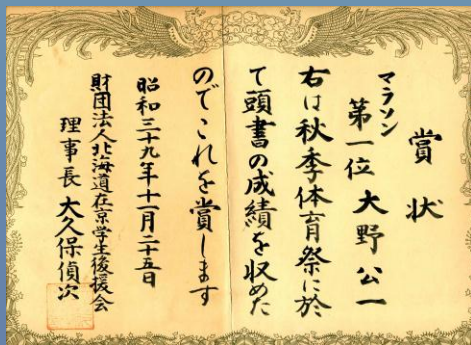 賞状
マラソン
第一位 大野公一
右は秋季体育祭に於
て頭書の成績を収めた
のでこれを賞します
昭和三十九年十一月二十五日
財団法人北海道在京学生後援会
理事長 大久保偵次